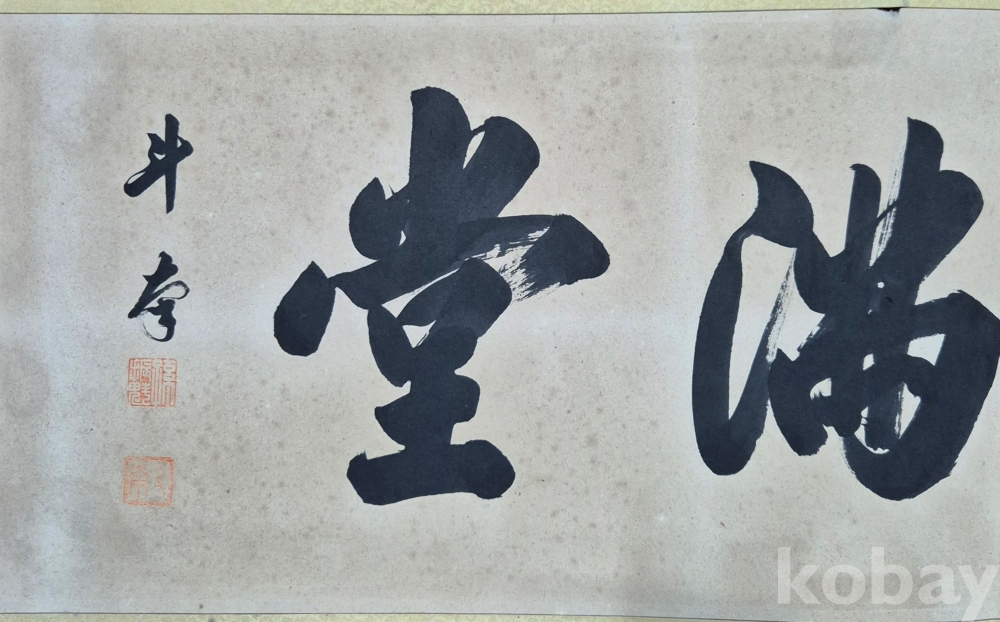 滿堂
斗南
kobay